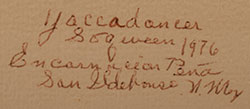 Yaccadancer
Soqween 1976
Encarnacion Peña
San Ildefonso N Mex